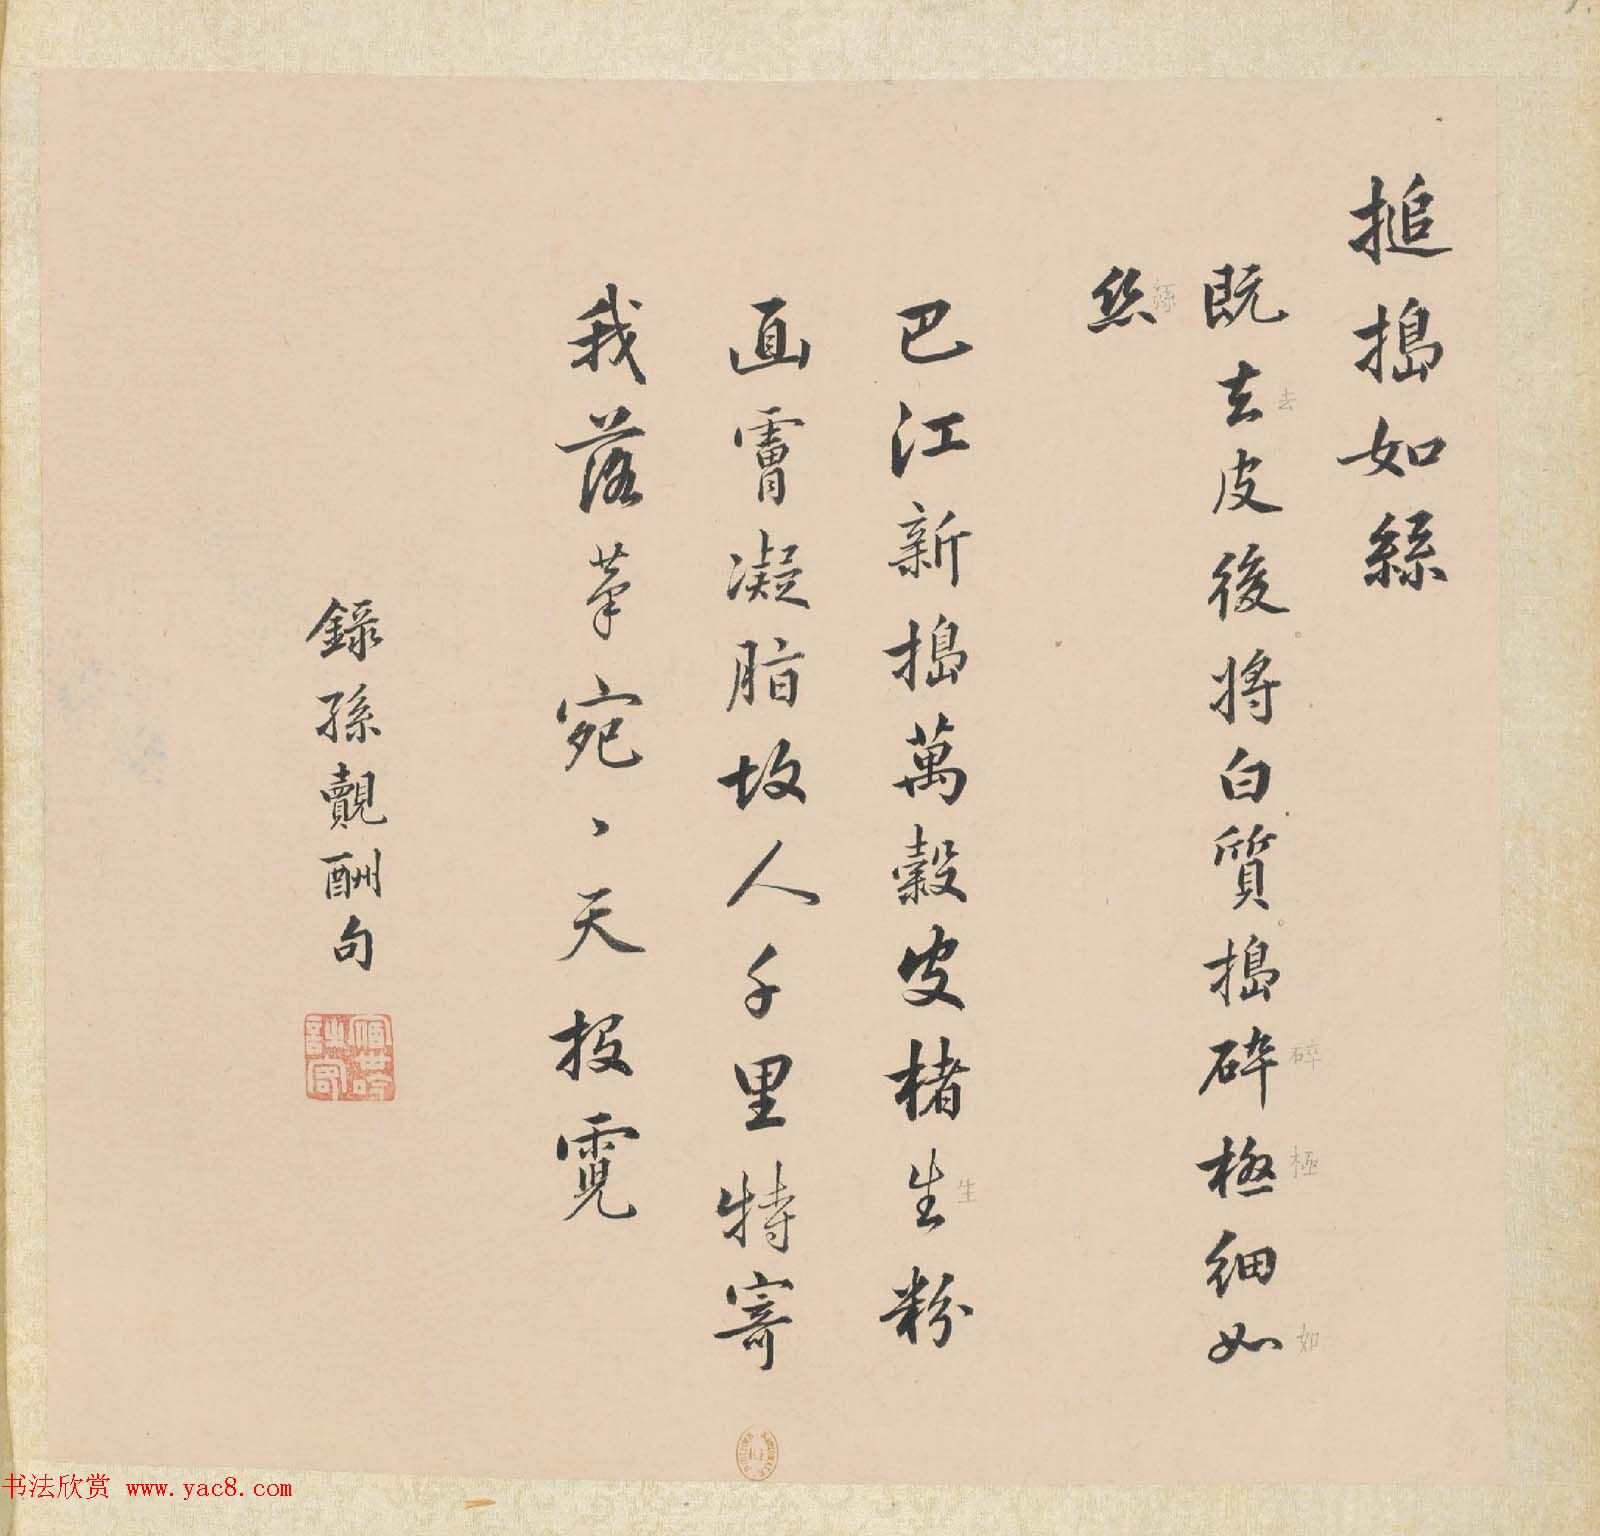 搥搗如絲
既去皮後將白質搗碎極細如
去
碎
極
如
絲
絲
巴江新搗萬穀皮楮生粉
生
面膚凝脂故人千里特寄
我落筆宛、天投霓
錄孫覿酬句
书法欣赏 www.yac8.com